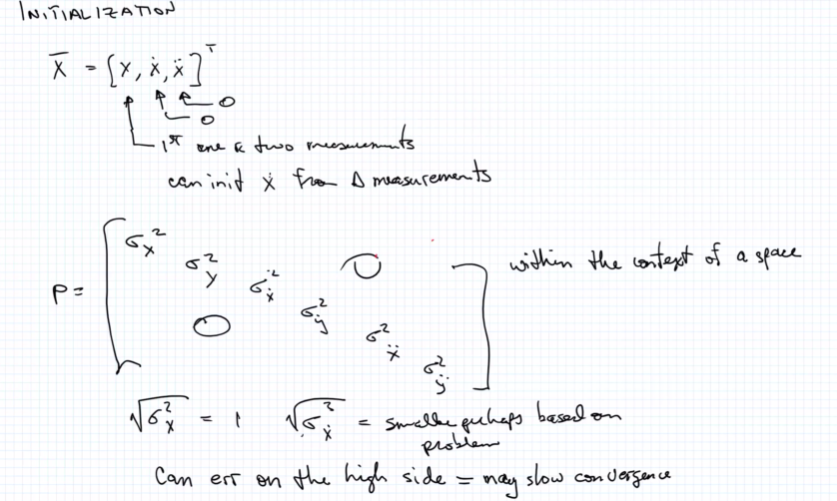 INITIALIZATION
X̄ = [x, ẋ, ẍ]ᵀ
0
0
1ST one or two measurements
can init ẋ from Δ measurements
P = [σₓ² σ_y² σ_ẋ² σ_ẏ² σ_ẍ² σ_ÿ²] 0 0
within the context of a space
√σₓ² = 1 √σ_ẋ² = smaller perhaps based on
problem
Can err on the high side = may slow convergence